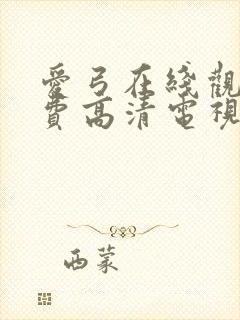 愛弓在綫觀
費高清電視
西蒙